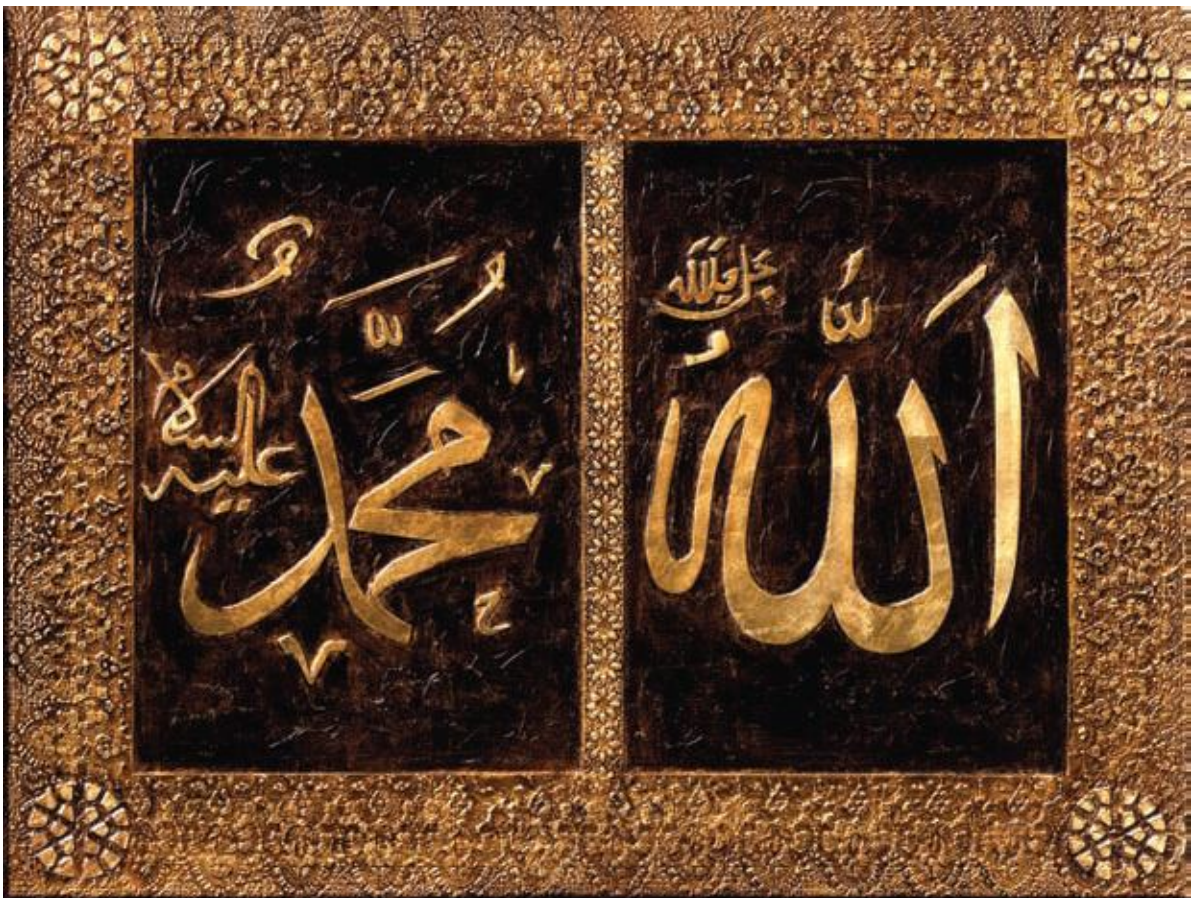 اللّٰهُ
جل جلاله
مُحَمَّدٌ
عليه السلام